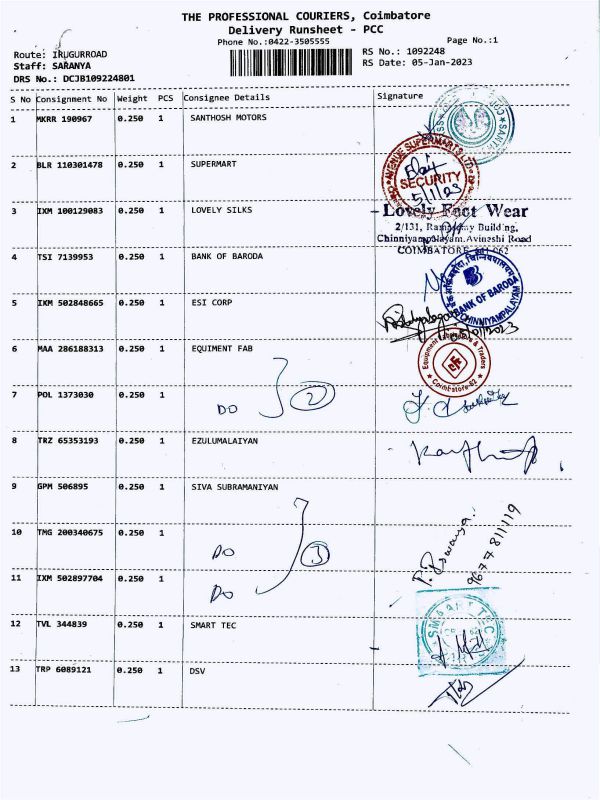 THE PROFESSIONAL COURIERS, Coimbatore
Delivery Runsheet - PCC
Phone No.:0422-3505555
Page No.:1
Route: IRUGURROAD
RS No.: 1092248
Staff: SARANYA
RS Date: 05-Jan-2023
DRS No.: DCJB109224801
S No Consignment No Weight PCS Consignee Details Signature
1 MKRR 190967 0.250 1 SANTHOSH MOTORS
AVENUE SUPERMARTS LTD
2 BLR 110301478 0.250 1 SUPERMART
SECURITY
5/1/23
3 IXM 100129083 0.250 1 LOVELY SILKS
Lovely Foot Wear
2/131, Ramasamy Building,
Chinniyampalayam, Avinashi Road
COIMBATORE 641 062
4 TSI 7139953 0.250 1 BANK OF BARODA
BANK OF BARODA
CHINNIYAMPALAYAM
5 IXM 502848665 0.250 1 ESI CORP
6 MAA 286188313 0.250 1 EQUIMENT FAB
Coimbatore-62
7 POL 1373030 0.250 1 DO 2
8 TRZ 65353193 0.250 1 EZULUMALAIYAN
9 GPM 506895 0.250 1 SIVA SUBRAMANIYAN
10 TMG 200340675 0.250 1 DO 3
9677811119
11 IXM 502897704 0.250 1 DO
12 TVL 344839 0.250 1 SMART TEC
SMART TEC
13 TRP 6089121 0.250 1 DSV